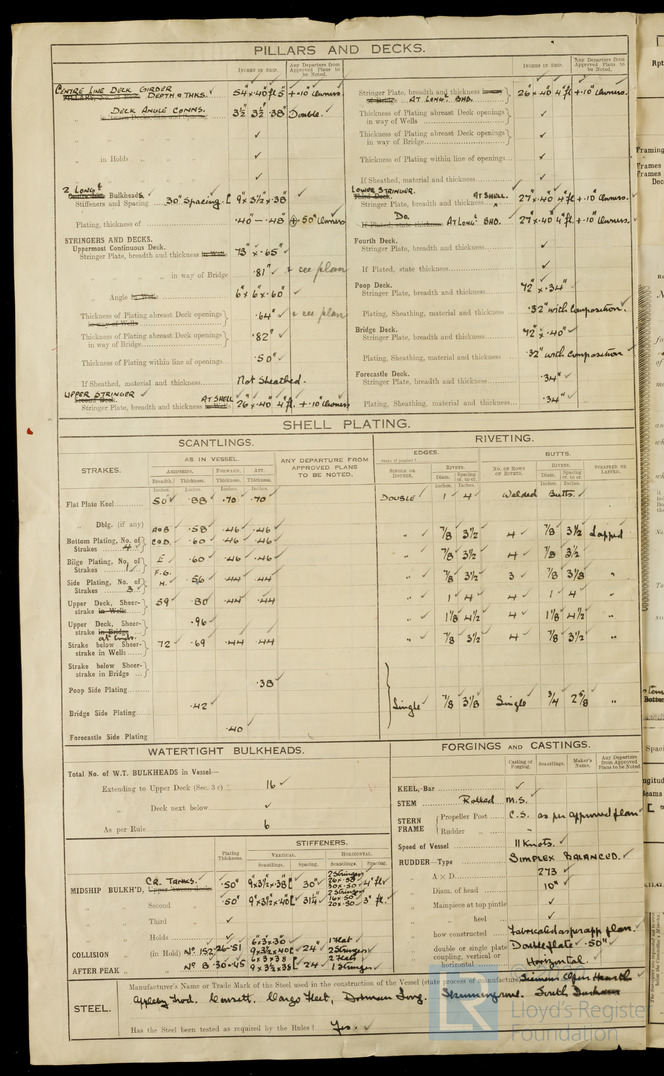 PILLARS AND DECKS.
INCHES IN SHIP.
Any Departure from Approved Plans to be Noted.
CENTRE LINE DECK GIRDER DEPTH & THKS. 54" x .40 ft 5" + .10 Owners.
DECK ANGLE CONNS. 3½ 3½ .38 Double.
" in Holds ✓
2 LONGL Bulkheads ✓
Stiffeners and Spacing 30" Spacing. [ 9 x 3½ x .38
Plating, thickness of .40 — .48 + 50 Owners
STRINGERS AND DECKS.
Uppermost Continuous Deck.
Stringer Plate, breadth and thickness in Wells 73" x .65" ✓
" " " in way of Bridge .81" ✓ + see plan
Angle in Wells 6 x 6 x .60" ✓
Thickness of Plating abreast Deck openings in way of Wells .64" ✓ + see plan
Thickness of Plating abreast Deck openings in way of Bridge .82" ✓
Thickness of Plating within line of openings .50" ✓
If Sheathed, material and thickness Not Sheathed.
UPPER STRINGER
Second Deck.
Stringer Plate, breadth and thickness AT SHELL 26" x .40 4 ft. + .10 Owners
INCHES IN SHIP.
Any Departure from Approved Plans to be Noted.
Stringer Plate, breadth and thickness AT LONGL BHD. 26" x .40 4 ft + .10 Owners.
Thickness of Plating abreast Deck openings in way of Wells ✓
Thickness of Plating abreast Deck openings in way of Bridge ✓
Thickness of Plating within line of openings ✓
If Sheathed, material and thickness ✓
LOWER STRINGER.
Third Deck.
Stringer Plate, breadth and thickness AT SHELL. 27" x .40 4 ft + .10 Owners.
Do.
If Plated, state thickness AT LONGL BHD. 27" x .40 4 ft + .10 Owners.
Fourth Deck.
Stringer Plate, breadth and thickness ✓
If Plated, state thickness ✓
Poop Deck.
Stringer Plate, breadth and thickness 42" x .34" ✓
Plating, Sheathing, material and thickness .32" with Composition.
Bridge Deck.
Stringer Plate, breadth and thickness 42" x .40" ✓
Plating, Sheathing, material and thickness .32" with Composition ✓
Forecastle Deck.
Stringer Plate, breadth and thickness .34" ✓
Plating, Sheathing, material and thickness .34" ✓
SHELL PLATING.
SCANTLINGS.
STRAKES.
AS IN VESSEL.
AMIDSHIPS. FORWARD. AFT.
Breadth. Thickness. Thickness. Thickness.
Inches. Inches. Inches. Inches.
ANY DEPARTURE FROM APPROVED PLANS TO BE NOTED.
RIVETING.
EDGES.
State if joggled?
SINGLE OR DOUBLE.
RIVETS.
Diam. Spacing cr. to cr.
BUTTS.
NO. OF ROWS OF RIVETS.
RIVETS.
Diam. Spacing cr. to cr.
STRAPPED OR LAPPED.
Flat Plate Keel 50 ✓ .88 .70 .70 DOUBLE ✓ 1 ✓ 4 ✓ Welded Butts.
" Dblg. (if any)
Bottom Plating, No. of Strakes 4 A & B .58 ✓ .46 ✓ .46 ✓ " 7/8 3½ 4 7/8 3½ Lapped
C & D. .60 .46 .46 " 7/8 3½ 4 7/8 3½
Bilge Plating, No. of Strakes 1 E .60 .46 .46 " 7/8 3½ 3 7/8 3 1/8 "
Side Plating, No. of Strakes 3 F. G. H. .56 .44 .44 " 1 4 4 1 4 "
Upper Deck, Sheerstrake in Wells 59 .80 .44 .44 " 1 1/8 4½ 4 1 1/8 4½ "
Upper Deck, Sheerstrake in Bridge .96 ✓
Strake below Sheerstrake in Wells 72 .69 .44 .44 " 7/8 3½ 4 7/8 3½ "
Strake below Sheerstrake in Bridge
Poop Side Plating .38 ✓
Bridge Side Plating .42 ✓ Single ✓ 7/8 3 1/8 Single ✓ 3/4 2 5/8 "
Forecastle Side Plating .40 ✓
WATERTIGHT BULKHEADS.
Total No. of W.T. BULKHEADS in Vessel—
Extending to Upper Deck (Sec. 3 c) 16 ✓
" Deck next below ✓
As per Rule 6
Plating Thickness.
STIFFENERS.
VERTICAL. HORIZONTAL.
Scantlings. Spacing. Scantlings. Spacing.
MIDSHIP BULKH'D, CR. TANKS. .50" 9" x 3½ x .38 [ 30" 2 Stringers 4 ft
" " Second " .50" 9" x 3½ x .40 [ 31¼" 2 Stringers 3 ft.
" " Third " ✓
" " Holds ✓
COLLISION " (in Hold) No 152 .26-.51 6 x 3 x .30 9 x 3½ x .40 [ 24" 1 flat 2 Stringers
AFTER PEAK " " No 8 .30-.45 6 x 3 x .38 9 x 3½ x .38 [ 24 2 flats 1 Stringer
FORGINGS AND CASTINGS.
Casting or Forging. Scantlings. Maker's Name. Any Departure from Approved Plans to be Noted.
KEEL, Bar ✓
STEM Rolled M.S. ✓
STERN FRAME Propeller Post C.S. as per approved plan
Rudder " ✓
Speed of Vessel 11 Knots. ✓
RUDDER—Type SIMPLEX BALANCED. ✓
" A x D 273 ✓
" Diam. of head 10" ✓
" Mainpiece at top pintle ✓
" " heel ✓
" how constructed Fabricated as per app plan.
" double or single plate Double plate .50"
" coupling, vertical or horizontal Horizontal. ✓
STEEL.
Manufacturer's Name or Trade Mark of the Steel used in the construction of the Vessel (state process of manufacture) Siemens Open Hearth
Appleby Frod. Consett. Cargo Fleet, Dorman Long. Skinningrove. South Durham
Has the Steel been tested as required by the Rules? Yes. ✓
Lloyd's Register
Foundation